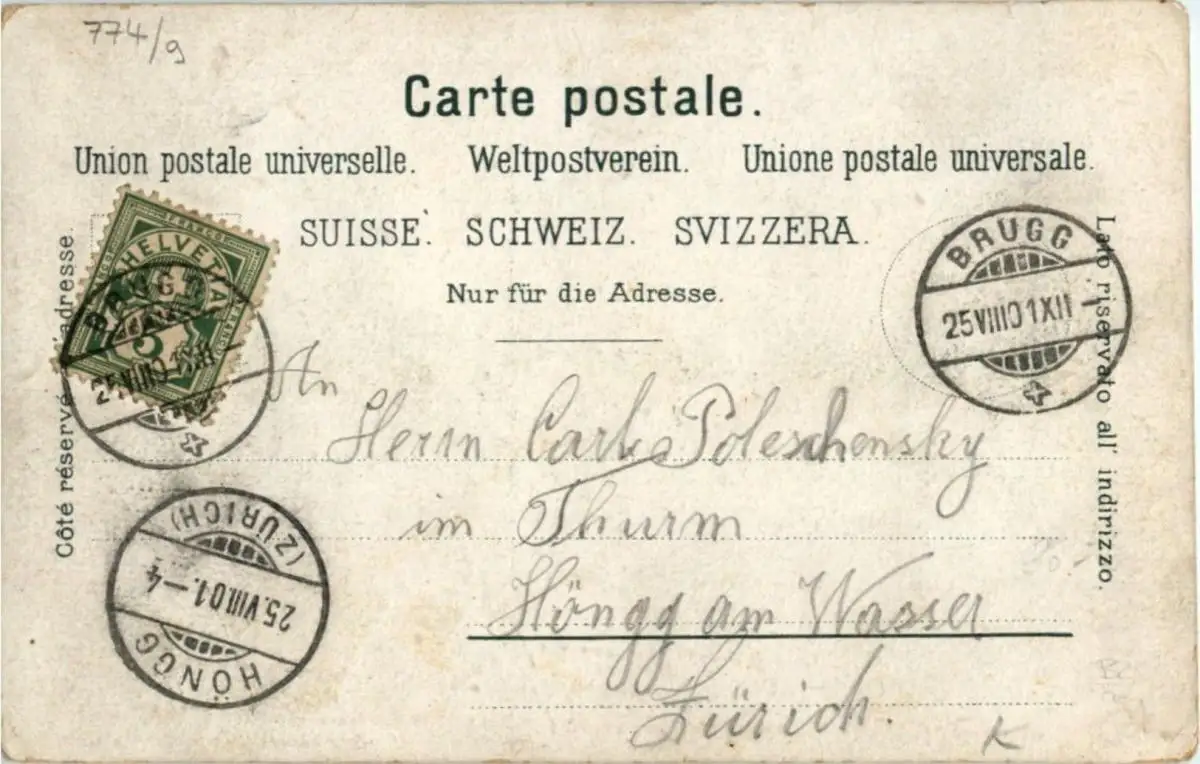 774/9
Carte postale.
Union postale universelle. Weltpostverein. Unione postale universale.
SUISSE. SCHWEIZ. SVIZZERA.
Nur für die Adresse.
Côté réservé à l'adresse.
Lato riservato all' indirizzo.
FRANCO
HELVETIA
5
BRUGG
25.VIII.01.XII
BRUGG
25.VIII.01.XII-
An
Herrn Carl Poleschensky
im Thurm
Höngg am Wasser
Zürich.
HÖNGG
25.VIII.01.-4
(ZÜRICH)
K